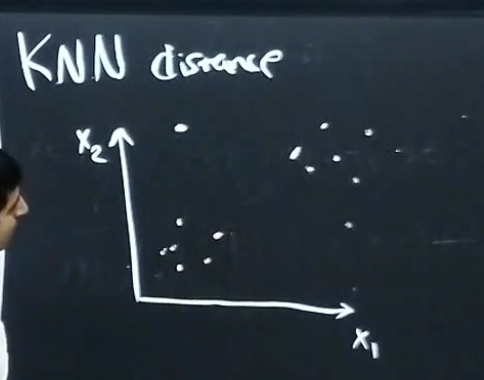 KNN distance
X₂
X₁